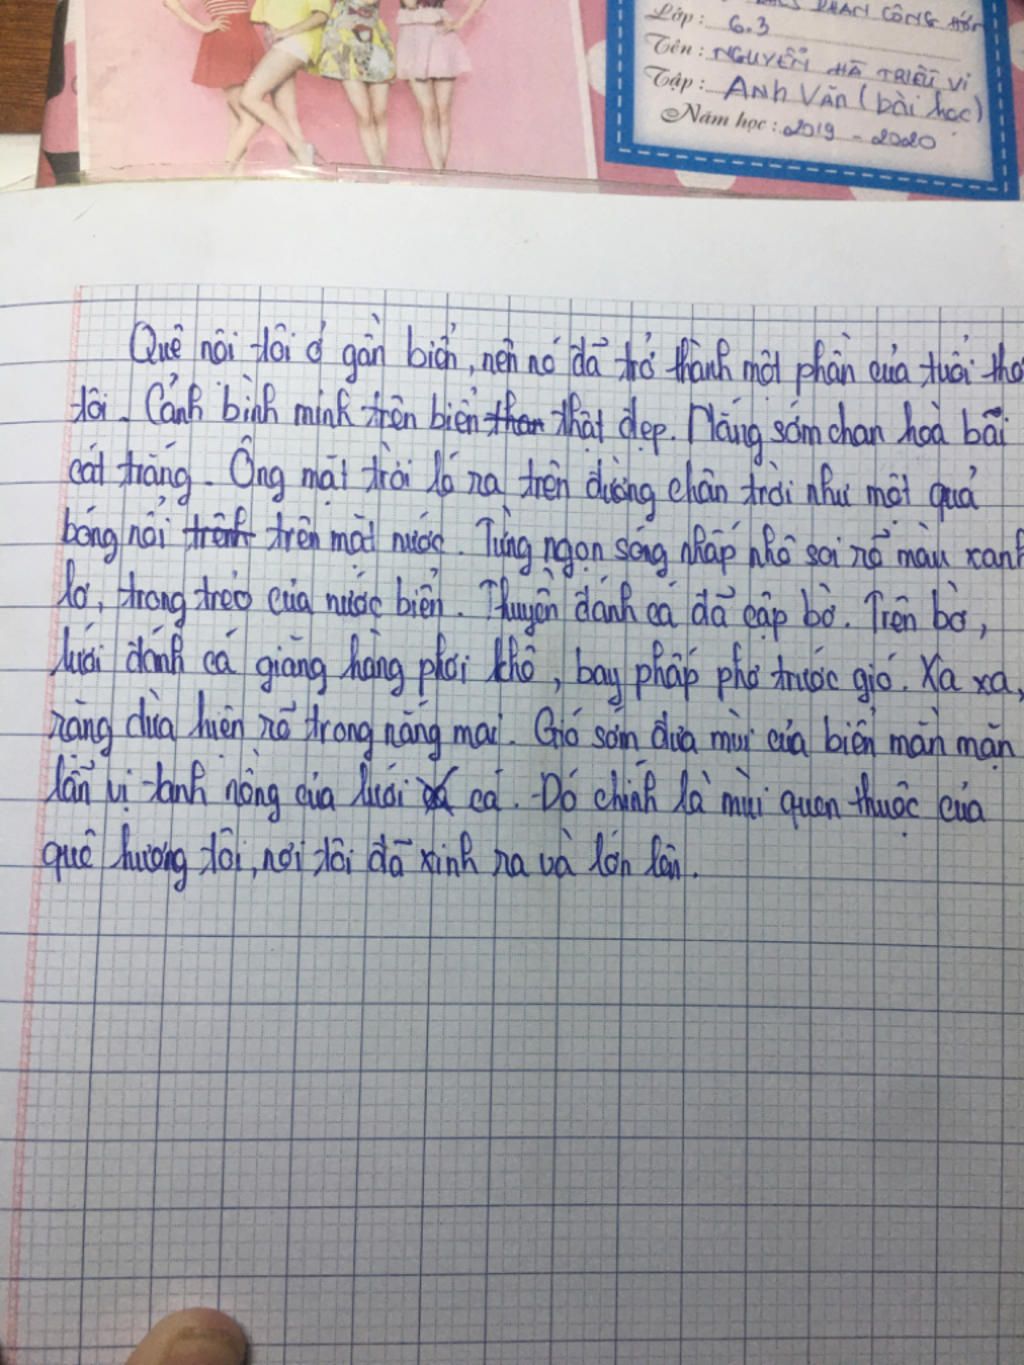 PHAN CÔNG HỚN
Lớp: 6.3
Tên: NGUYỄN HÀ TRIỀU VI
Tập: ANH VĂN (bài học)
Năm học: 2019 - 2020
Quê nội tôi ở gần biển, nên nó đã trở thành một phần của tuổi thơ
tôi. Cảnh bình minh trên biển than thật đẹp. Nắng sớm chan hoà bãi
cát trắng. Ông mặt trời ló ra trên đường chân trời như một quả
bóng nổi trênh trên mặt nước. Từng ngọn sóng nhấp nhô soi rõ màu xanh
lơ, trong trẻo của nước biển. Thuyền đánh cá đã cập bờ. Trên bờ,
lưới đánh cá giăng hàng phơi khô, bay phấp phơ trước gió. Xa xa,
rặng dừa hiện rõ trong nắng mai. Gió sớm đưa mùi của biển mằn mặn
lẫn vị tanh nồng của lưới cá. Đó chính là mùi quen thuộc của
quê hương tôi, nơi tôi đã xinh ra và lớn lên.